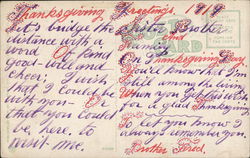 Thanksgiving Greetings, 1919
Let's bridge the
distance with a
word Of fond
good-will and
cheer; I wish
that I could be
with you Or
that you could
be, here, to
visit me.
Sister Brother
and
Family
On Thanksgiving Day
You'll know that I'm
still
When you get this wish
for a glad Thanksgiving
To let you know I
always remember you
Brother Fred.
CARD